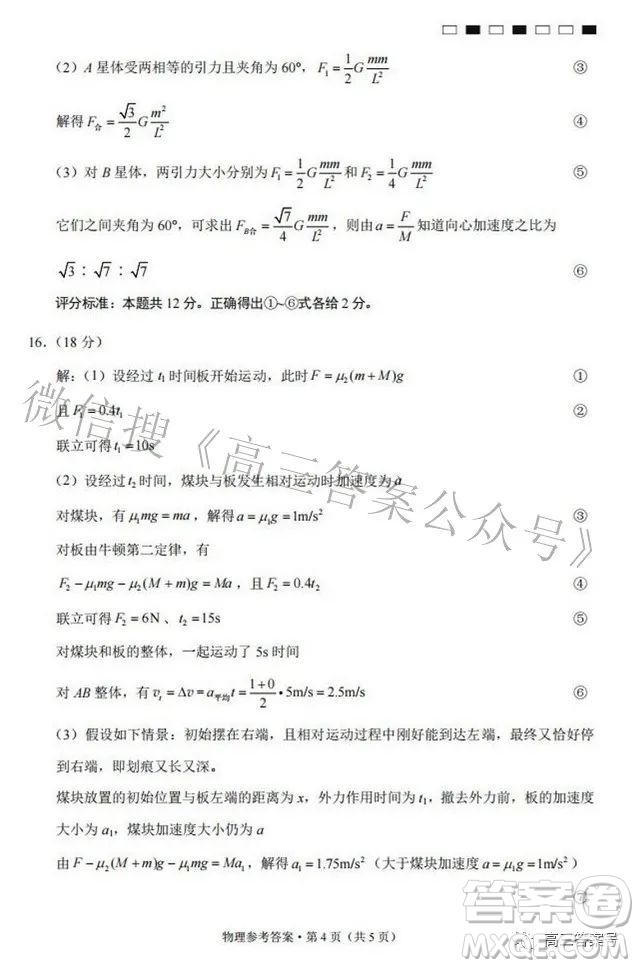 （2）A 星体受两相等的引力且夹角为 60°，F₁ = 1/2 G mm/L² ③
解得 F合 = √3/2 G m²/L² ④
（3）对 B 星体，两引力大小分别为 F₁ = 1/2 G mm/L² 和 F₂ = 1/4 G mm/L² ⑤
它们之间夹角为 60°，可求出 F_B合 = √7/4 G mm/L²，则由 a = F/M 知道向心加速度之比为
√3：√7：√7 ⑥
评分标准：本题共 12 分。正确得出①~⑥式各给 2 分。
16.（18 分）
解：（1）设经过 t₁ 时间板开始运动，此时 F = μ₂(m + M)g ①
且 F₁ = 0.4t₁ ②
联立可得 t₁ = 10s
（2）设经过 t₂ 时间，煤块与板发生相对运动时加速度为 a
对煤块，有 μ₁mg = ma，解得 a = μ₁g = 1m/s² ③
对板由牛顿第二定律，有
F₂ − μ₁mg − μ₂(M + m)g = Ma，且 F₂ = 0.4t₂ ④
联立可得 F₂ = 6N、t₂ = 15s ⑤
对煤块和板的整体，一起运动了 5s 时间
对 AB 整体，有 vₜ = Δv = a平均t = (1+0)/2 • 5m/s = 2.5m/s ⑥
（3）假设如下情景：初始摆在右端，且相对运动过程中刚好能到达左端，最终又恰好停
到右端，即划痕又长又深。
煤块放置的初始位置与板左端的距离为 x，外力作用时间为 t₁，撤去外力前，板的加速度
大小为 a₁，煤块加速度大小仍为 a
由 F − μ₂(M + m)g − μ₁mg = Ma₁，解得 a₁ = 1.75m/s²（大于煤块加速度 a = μ₁g = 1m/s²）
物理参考答案・第 4 页（共 5 页）
微信搜《高三答案公众号》
答案圈
MXQE.COM
高三答案号